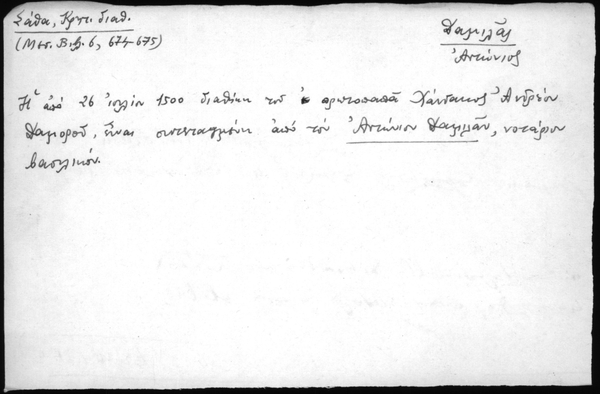 Σάθα, Κρητ. διαθ.
(Μεσ. Βιβ. 6, 674-675)
Δαμιλᾶς
Ἀντώνιος
Ἡ ἀπό 26 ἰουλίου 1500 διαθήκη τοῦ πρωτοπαπᾶ Χάνδακος Ἀνδρέου
εἶναι συντεταγμένη ἀπό τόν Ἀντώνιον Δαμιλᾶν, νοτάριον
βασιλικόν.